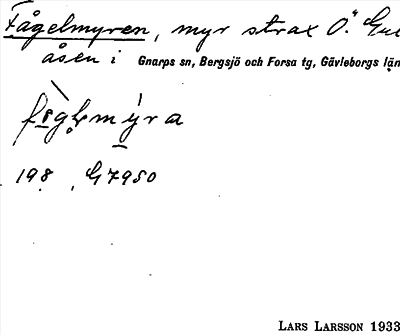 Fågelmyren, myr strax Ö.
åsen i Gnarps sn, Bergsjö och Forsa tg, Gävleborgs län
198. G7950
LARS LARSSON 1933